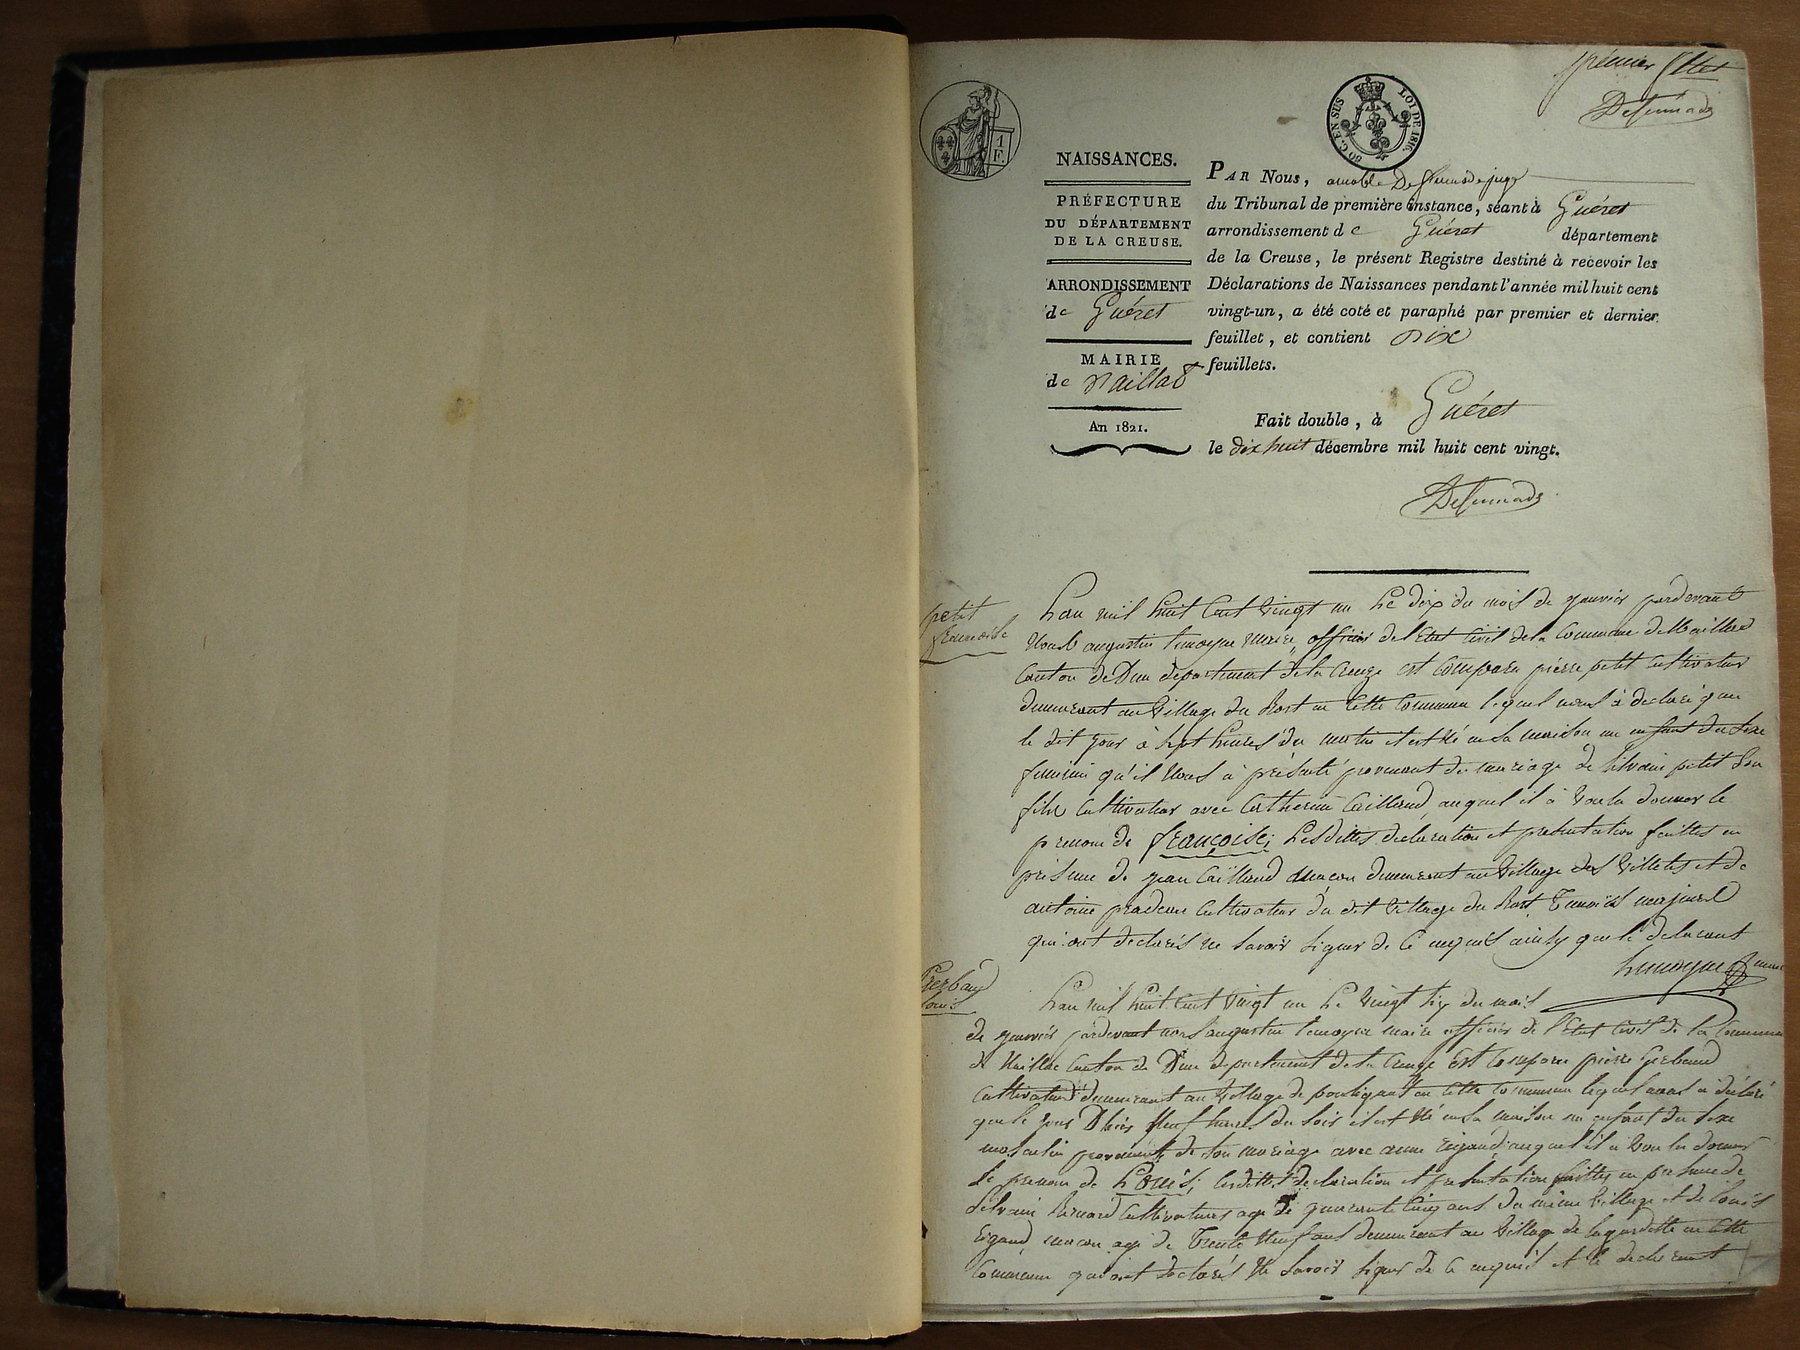 premier
NAISSANCES.
PRÉFECTURE
DU DÉPARTEMENT
DE LA CREUSE.
ARRONDISSEMENT
de Guéret
MAIRIE
de Naillat
An 1821.
1
F.
50 C. EN SUS
LOI DE 1816.
PAR Nous, juge
du Tribunal de première instance, séant à Guéret
arrondissement de Guéret département
de la Creuse, le présent Registre destiné à recevoir les
Déclarations de Naissances pendant l'année mil huit cent
vingt-un, a été coté et paraphé par premier et dernier
feuillet, et contient dix
feuillets.
Fait double, à Guéret
le dix huit décembre mil huit cent vingt.
petit
francoise
Lan mil huit Cent vingt un Le dix du mois de janvier pardevant
Nous augustin lemoyne maire, officier de l'Etat Civil de la Commune de Naillac
Canton de Dun departement de la Creuze est comparu pierre petit Cultivateur
demeurant au village du en Cette Commune lequel nous à declaré que
le dit jour à sept heures du matin il est Né en sa maison un enfant du sexe
feminin qu'il Nous à présenté provenant du mariage de silvain petit son
fils Cultivateur avec Catherine Caillaud, auquel il à voulu donner le
prenom de françoise; Lesdittes declaration et presentation faittes en
présence de jean Caillaud maçon demeurant au village des villettes et de
antoine Cultivateur du dit village du Temoins majeurs
qui ont declarés ne savoir signer de Ce enquis ainsy que le declarant
Lemoyne maire
Gerbaud
Louis
Lan mil huit Cent vingt un Le vingt six du mois
de janvier pardevant nous augustin lemoyne maire officier de l'Etat Civil de la Commune
de Naillac Canton de Dun departement de la Creuze Est Comparu pierre Gerbaud
Cultivateur demeurant au village de en Cette Commune lequel nous à déclaré
que le jour D'hier Neuf heures du soir il est Né en sa maison un enfant du sexe
masculin provenant de son mariage avec anne rigaud auquel il à voulu donner
le prenom de Louis; Lesdittes declaration et presentation faittes en presence de
silvain Cultivateur agé de quarante Cinq ans du même village et de Louis
rigaud, macon agé de Trente Neuf ans demeurant au village de en Cette
Commune qui ont declarés Ne savoir signer de Ce enquis et le declarant